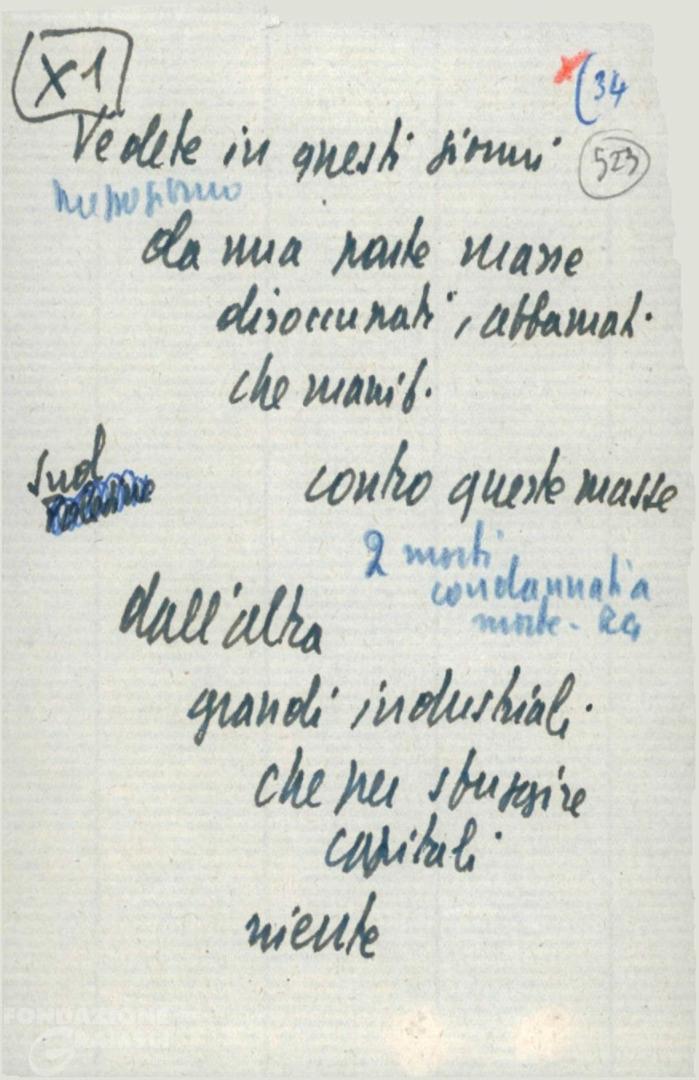 X1
(34
523
Vedete in questi giorni
mezzogiorno
da una parte masse
disoccupati, affamati
che manif.
sud
contro queste masse
2 morti
condannati a
morte -
dall'altra
grandi industriali
che per sfuggire
capitali
niente
FONDAZIONE